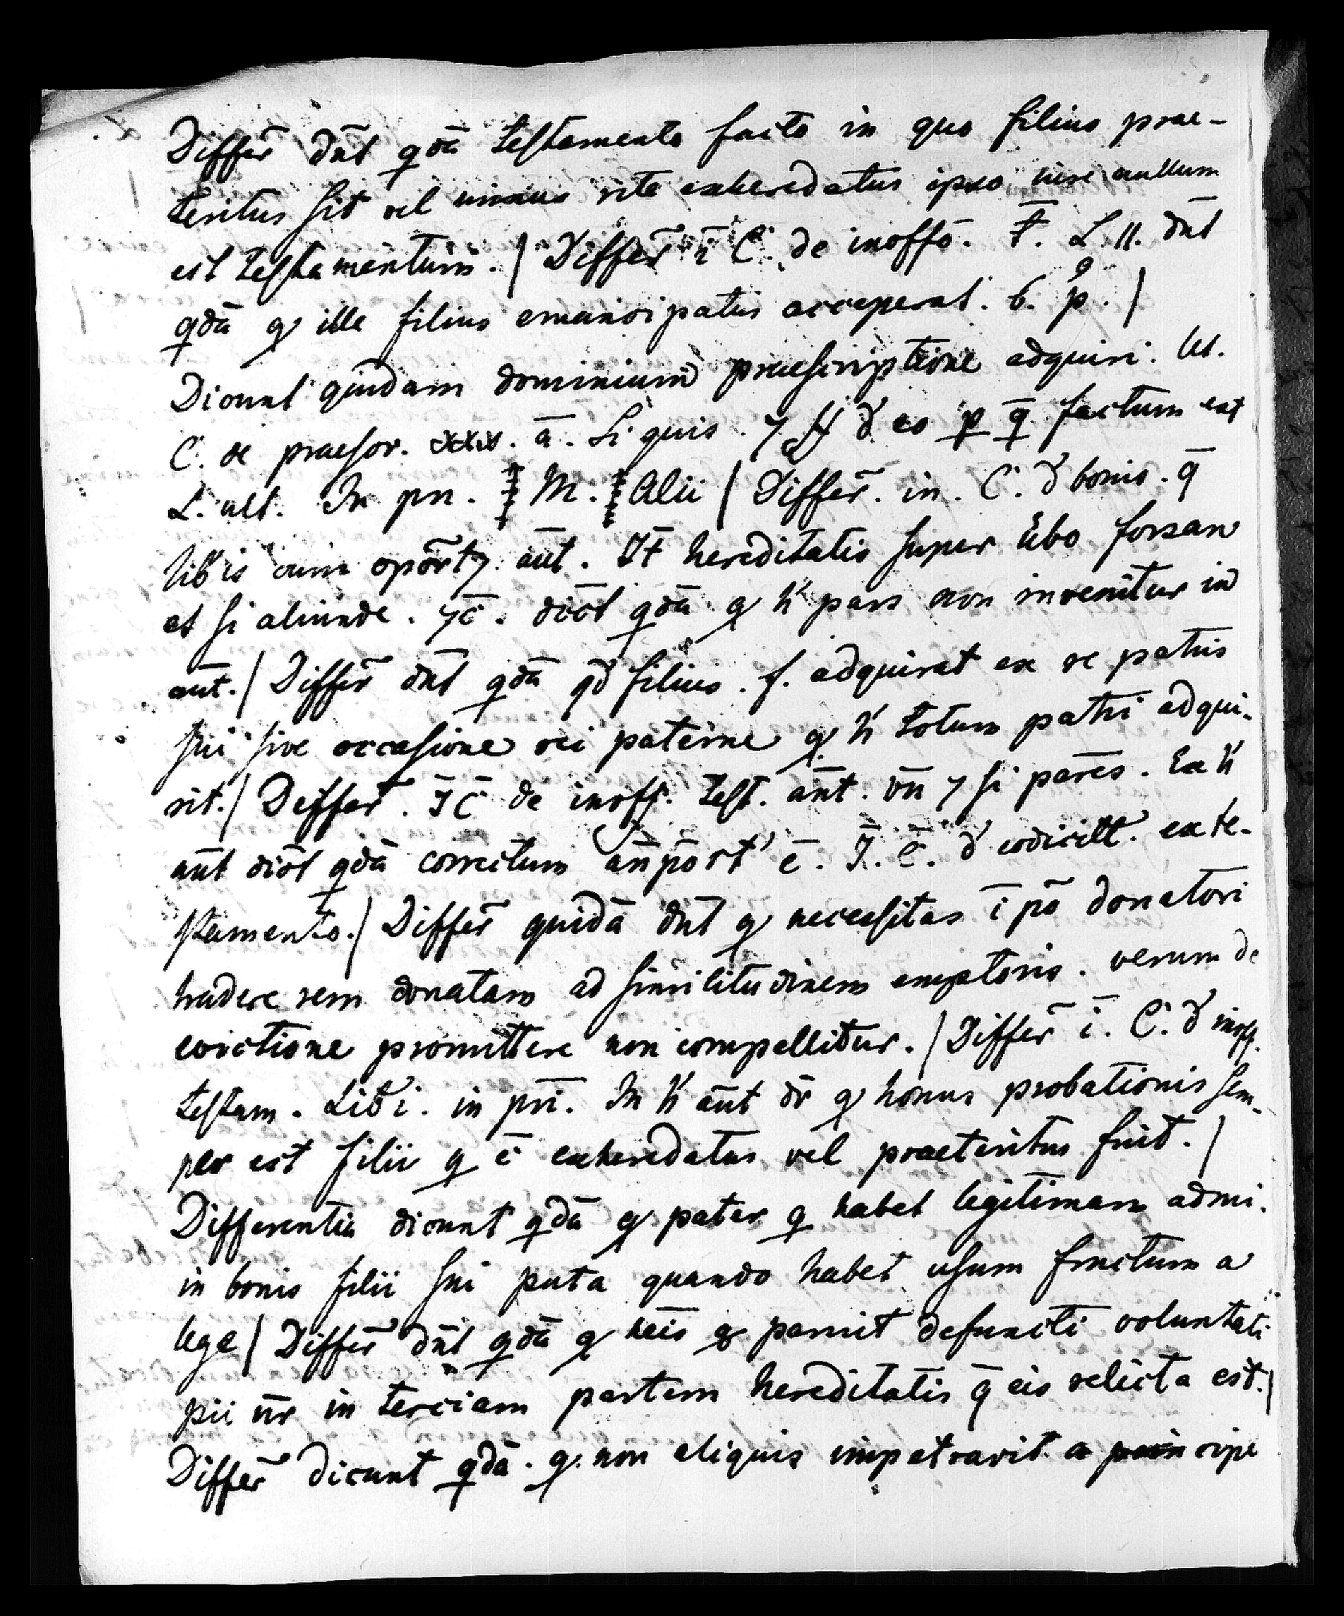 Differ̄ dn̄t qdā testamento facto in quo filius prae-
teritus sit vel minus rite exheredatus ipso iure nullum
est testamentum. / Differ̄ ī C. de inoffō. t̄. L. II. dn̄t
qdā q ille filius emancipatus acceperat. 6. p. /
Dicunt quidam dominium praescriptione adquiri. ut.
C. de praescr. xxx. ā. Si quis. 7 ff d eo p q̄ factum est
L. ult. In pn. M. Alii / Differ̄. in. C. d bonis. q̄
lib'is cum oport7 aūt. It̄ hereditatis super libo forsan
et si aliunde. 7c̄. dic̄t qdā q h' pars non invenitur in
aūt. / Differ̄ dn̄t qdā qd filius. f. adquirat ex re patris
sui sive occasione rei paterne q h' totum patri adqui-
rit. / Differ̄. I C̄ de inoff. test. aūt. vn̄ 7 si pares. Ex h'
aūt dic̄t qdā correctum ē. I. C̄. d codicill. exte-
stamento. / Differ̄ quidā dn̄t q necessitas ī pō donatori
tradere rem donatam ad similitudinem emptoris. verum de
evictione promittere non compellitur. / Differ̄ ī. C. d inoff.
testam. Lib' i. in pri. In h' aūt dr̄ q honus probationis sem-
per est filii q ē exheredatus vel praeteritus fuit. /
Differentia dicunt qdā q pater q habet legitimam admi.
in bonis filii sui puta quando habet usum fructum a
lege / Differ̄ dn̄t qdā q heīs q paruit defuncti voluntati
pii ūr in terciam partem hereditatis q̄ eis relicta est. /
Differ̄ dicunt qdā. q. non aliquis impetravit a principe